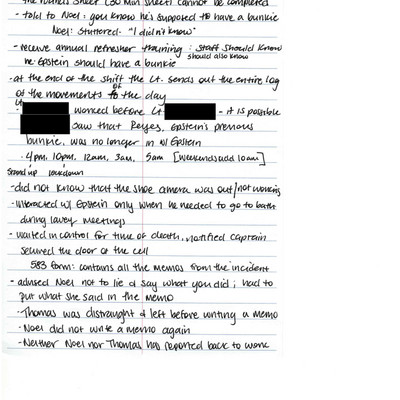 the rounds sheet (30 min sheet) cannot be completed
- told to Noel: you know he's supposed to have a bunkie
Noel: stuttered- "I didn't know"
- receive annual refresher training: staff should know
he Epstein should have a bunkie should also know
- at the end of the shift the Lt. sends out the entire log
of the movements of the day
- Lt worked before Lt - it is possible
saw that Reyes, Epstein's previous
bunkie, was no longer in w/ Epstein
4pm, 10pm, 12am, 3am, 5am [weekends add 10am]
Stand up lockdown
- did not know that the shoe camera was out/not working
- interacted w/ Epstein only when he needed to go to bath
during lawyer meetings
- waited in control for time of death, notified captain
secured the door of the cell
583 form: contains all the memos from the incident
- advised Noel not to lie & say what you did; had to
put what she said in the memo
- Thomas was distraught & left before writing a memo
- Noel did not write a memo again
- Neither Noel nor Thomas has reported back to work